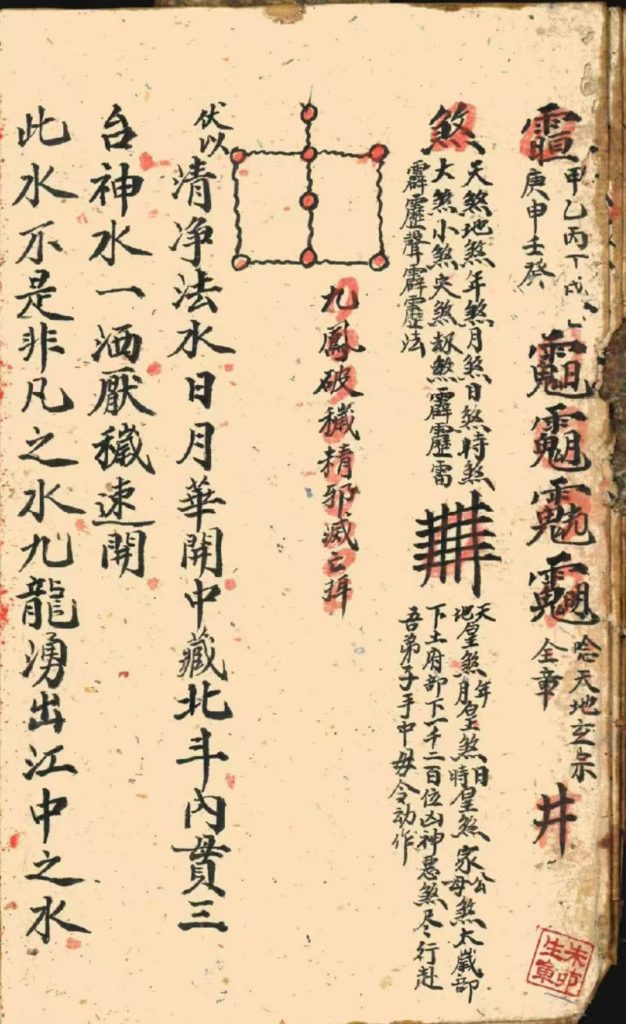 甲乙丙丁戊
庚申壬癸
唸天地玄宗
全章
井
煞
天煞地煞年煞月煞日煞時煞
大煞小煞夾煞 煞霹靂雷
霹靂聲霹靂法
天年
地皇煞月皇煞日時皇煞家公母煞太歲部
下土府部下一千二百位凶神惡煞尽行赴
吾弟子手中毋令动作
九鳳破穢精邪滅亡
伏以
清净法水日月華開中藏北斗內貫三
台神水一洒厭穢速開
此水不是非凡之水九龍湧出江中之水